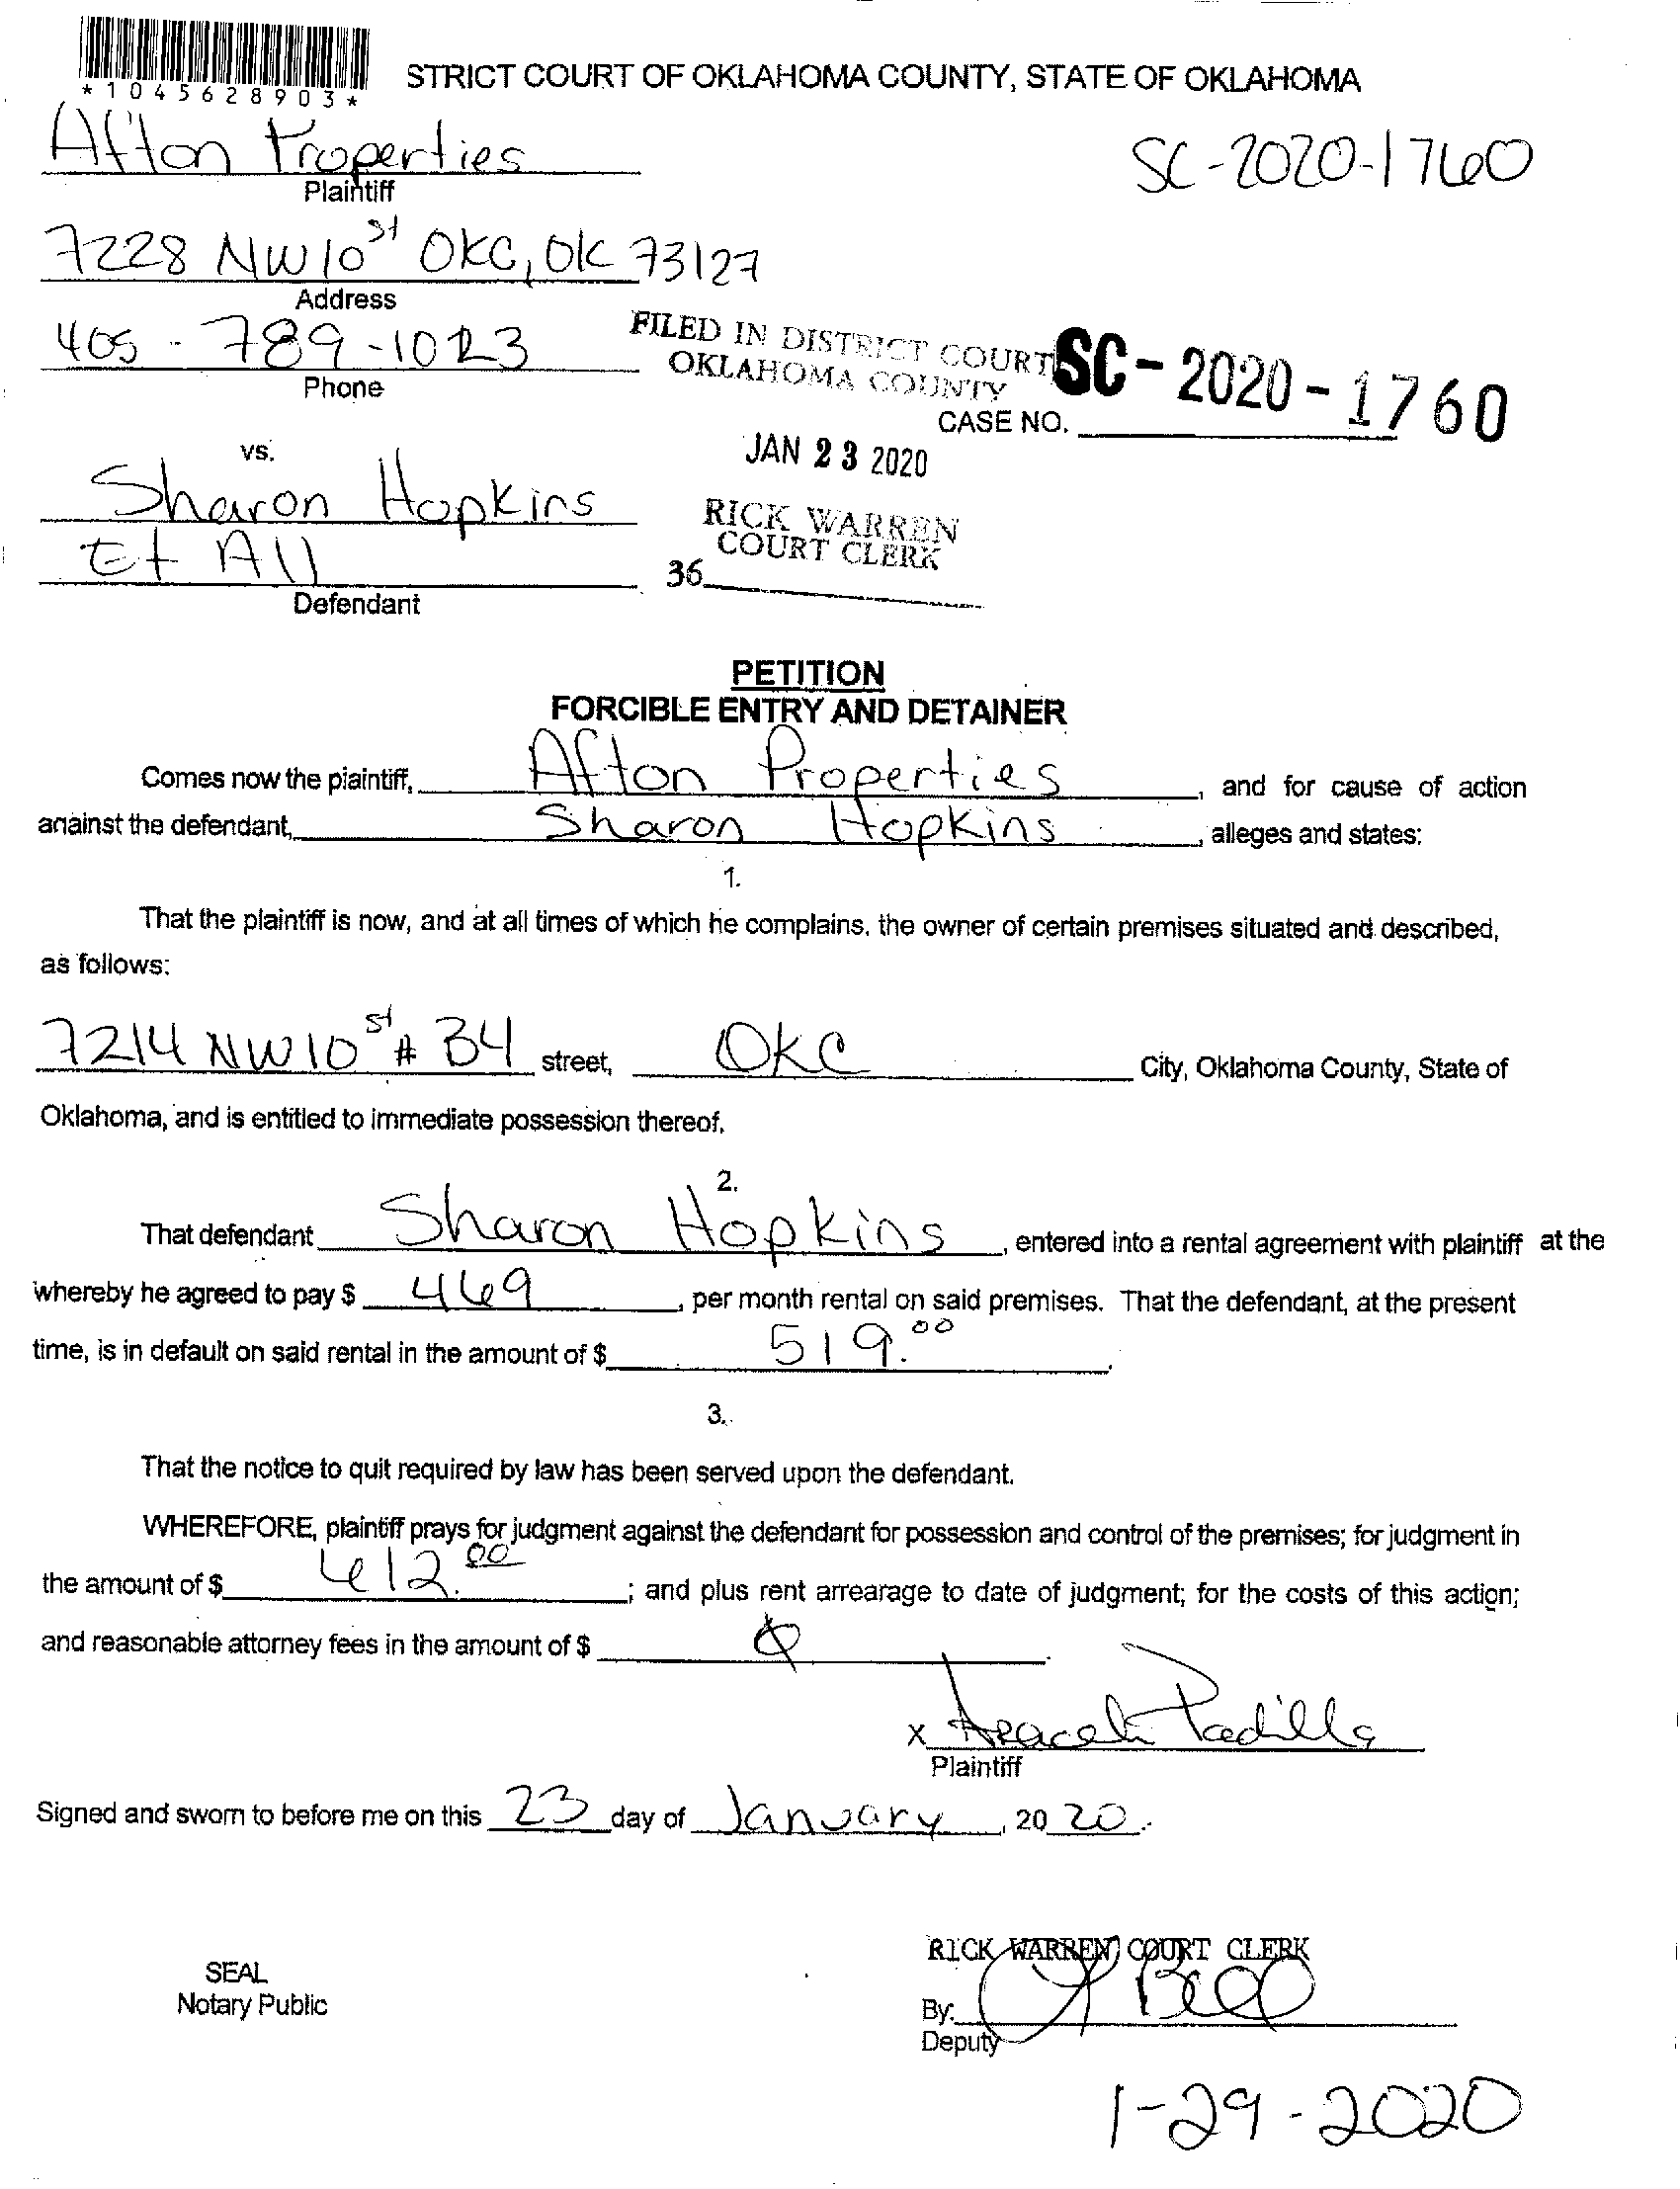 *1045628903*
STRICT COURT OF OKLAHOMA COUNTY, STATE OF OKLAHOMA
Afton Properties
Plaintiff
SC-2020-1760
7228 NW 10 st OKC, OK 73127
Address
405-789-1023
Phone
FILED IN DISTRICT COURT
OKLAHOMA COUNTY
SC-2020-1760
CASE NO.
JAN 23 2020
vs.
Sharon Hopkins
Et All
Defendant
RICK WARREN
COURT CLERK
36
PETITION
FORCIBLE ENTRY AND DETAINER
Comes now the plaintiff, Afton Properties, and for cause of action
against the defendant, Sharon Hopkins, alleges and states:
1.
That the plaintiff is now, and at all times of which he complains, the owner of certain premises situated and described,
as follows:
7214 NW 10 st # B4 street, OKC City, Oklahoma County, State of
Oklahoma, and is entitled to immediate possession thereof.
2.
That defendant Sharon Hopkins, entered into a rental agreement with plaintiff at the
whereby he agreed to pay $ 469, per month rental on said premises. That the defendant, at the present
time, is in default on said rental in the amount of $ 519.00.
3.
That the notice to quit required by law has been served upon the defendant.
WHEREFORE, plaintiff prays for judgment against the defendant for possession and control of the premises; for judgment in
the amount of $ 612.00; and plus rent arrearage to date of judgment; for the costs of this action;
and reasonable attorney fees in the amount of $ ∅.
x Araceli Padilla
Plaintiff
Signed and sworn to before me on this 23 day of January, 2020.
RICK WARREN COURT CLERK
SEAL
Notary Public
By:
Deputy
1-29-2020